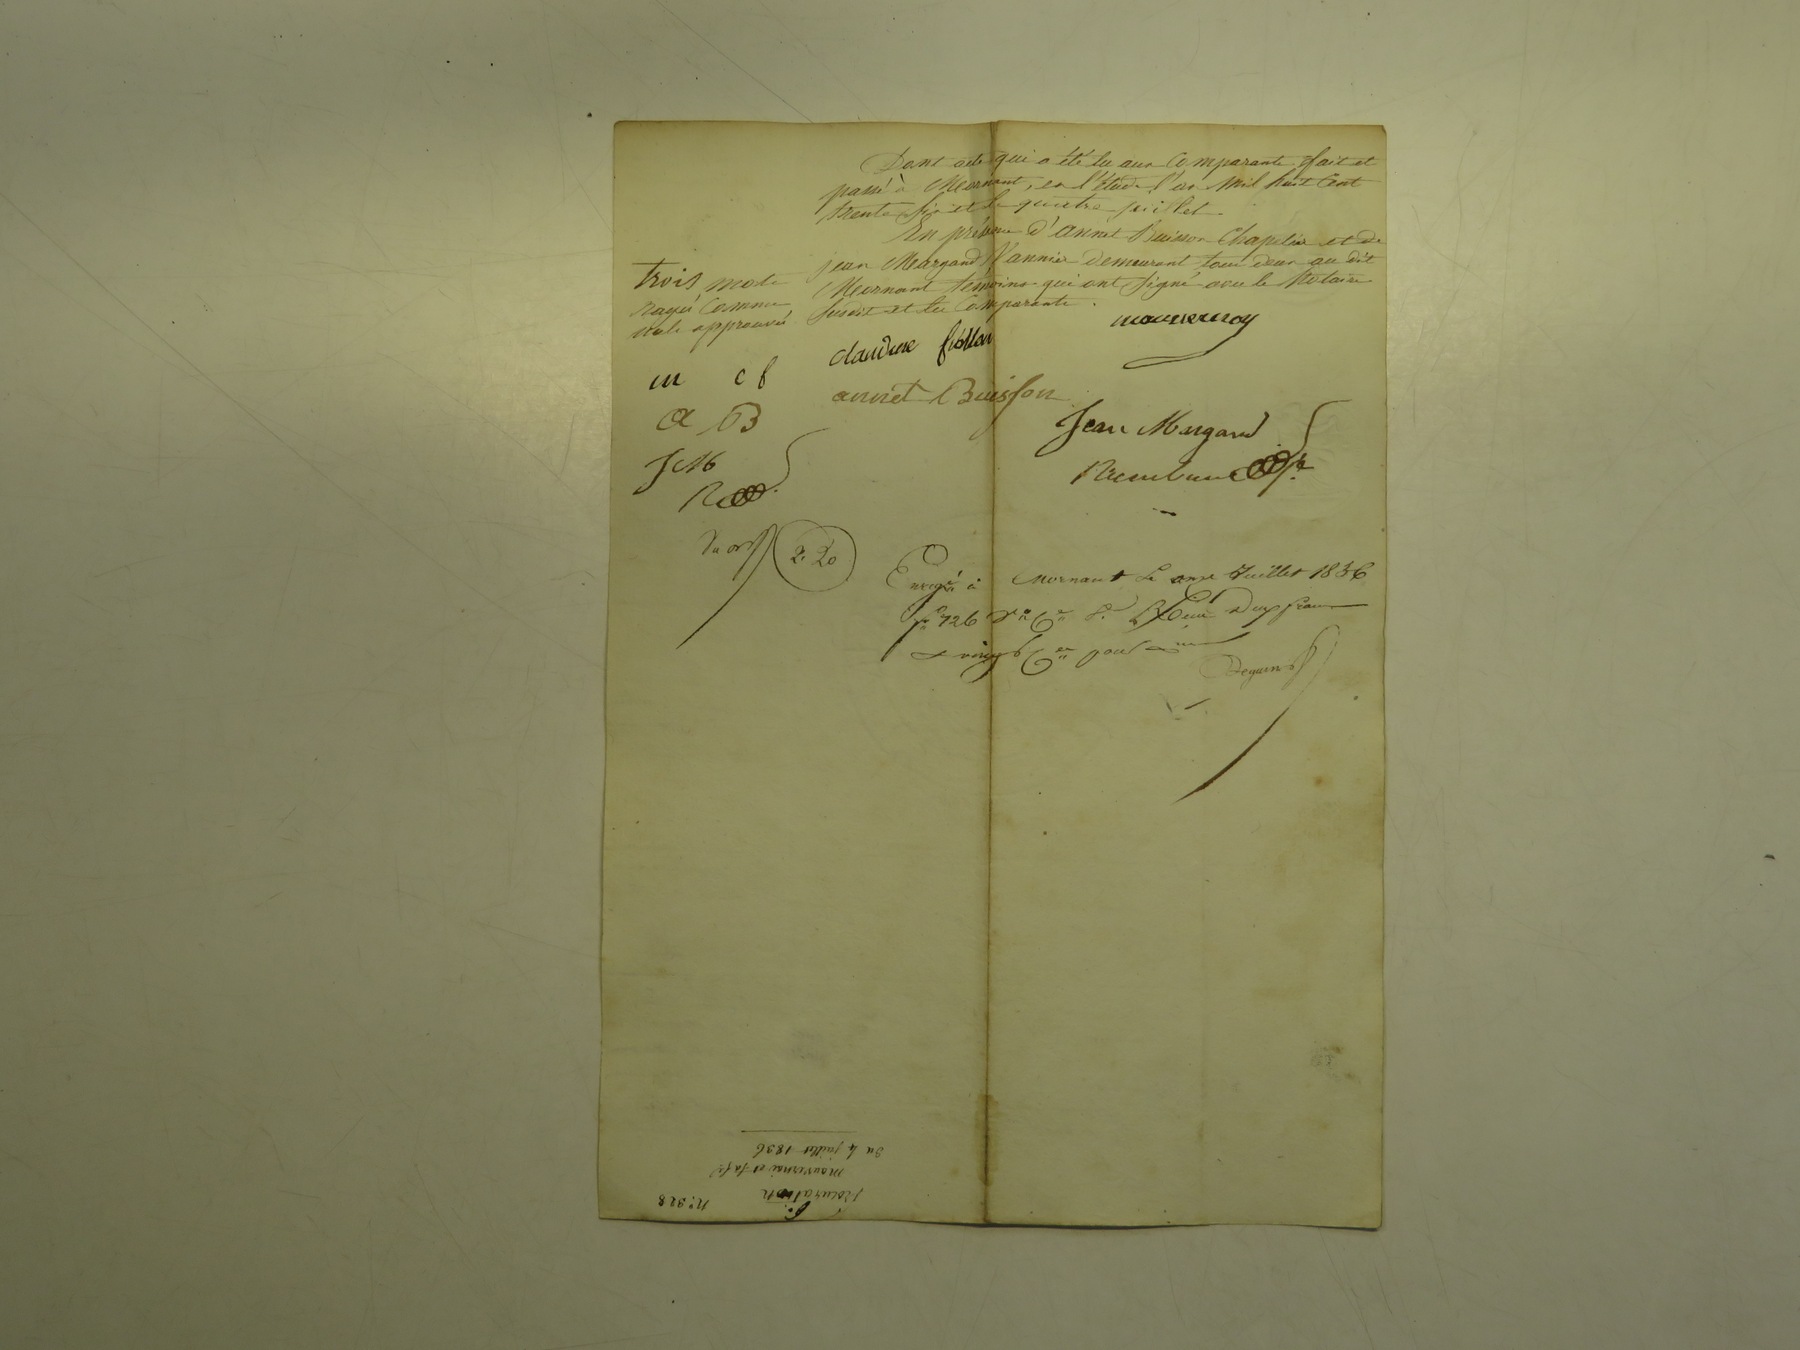 Dont acte qui a été lu aux Comparants. fait et
passé à Mornant, en l'étude, l'an Mil huit Cent
trente six et le quatre juillet.
En présence d'annet Buisson Chapelier et de
jean Margand Vannier demeurant tous deux au dit
Mornant témoins qui ont signé avec le Notaire
susdit et les Comparants.
trois mots
rayés Comme
nuls approuvés
mauvernay
claudine
annet Buisson
m c f
a B
J M
Jean Margand
R
2. 20
Enregé à Mornant le onze Juillet 1836
fo 126 Ro Ce Reçu Deux francs
& vingt Cen pour
Procuration
mauvernai et sa fe
Du 4 juillet 1836
No. 328